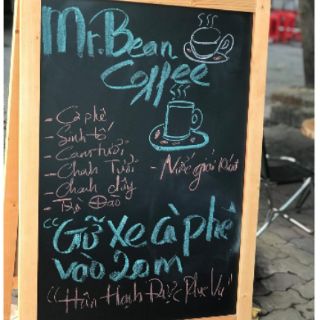 Mr. Bean
Coffee
- Cà phê
- Sinh tố
- Cam tươi
- Chanh Tươi
- Nước giải khát
- Chanh dây
- Trà Đào
"Gữ xe cà phê
vào 20m
"Hân Hạnh Được Phục Vụ"